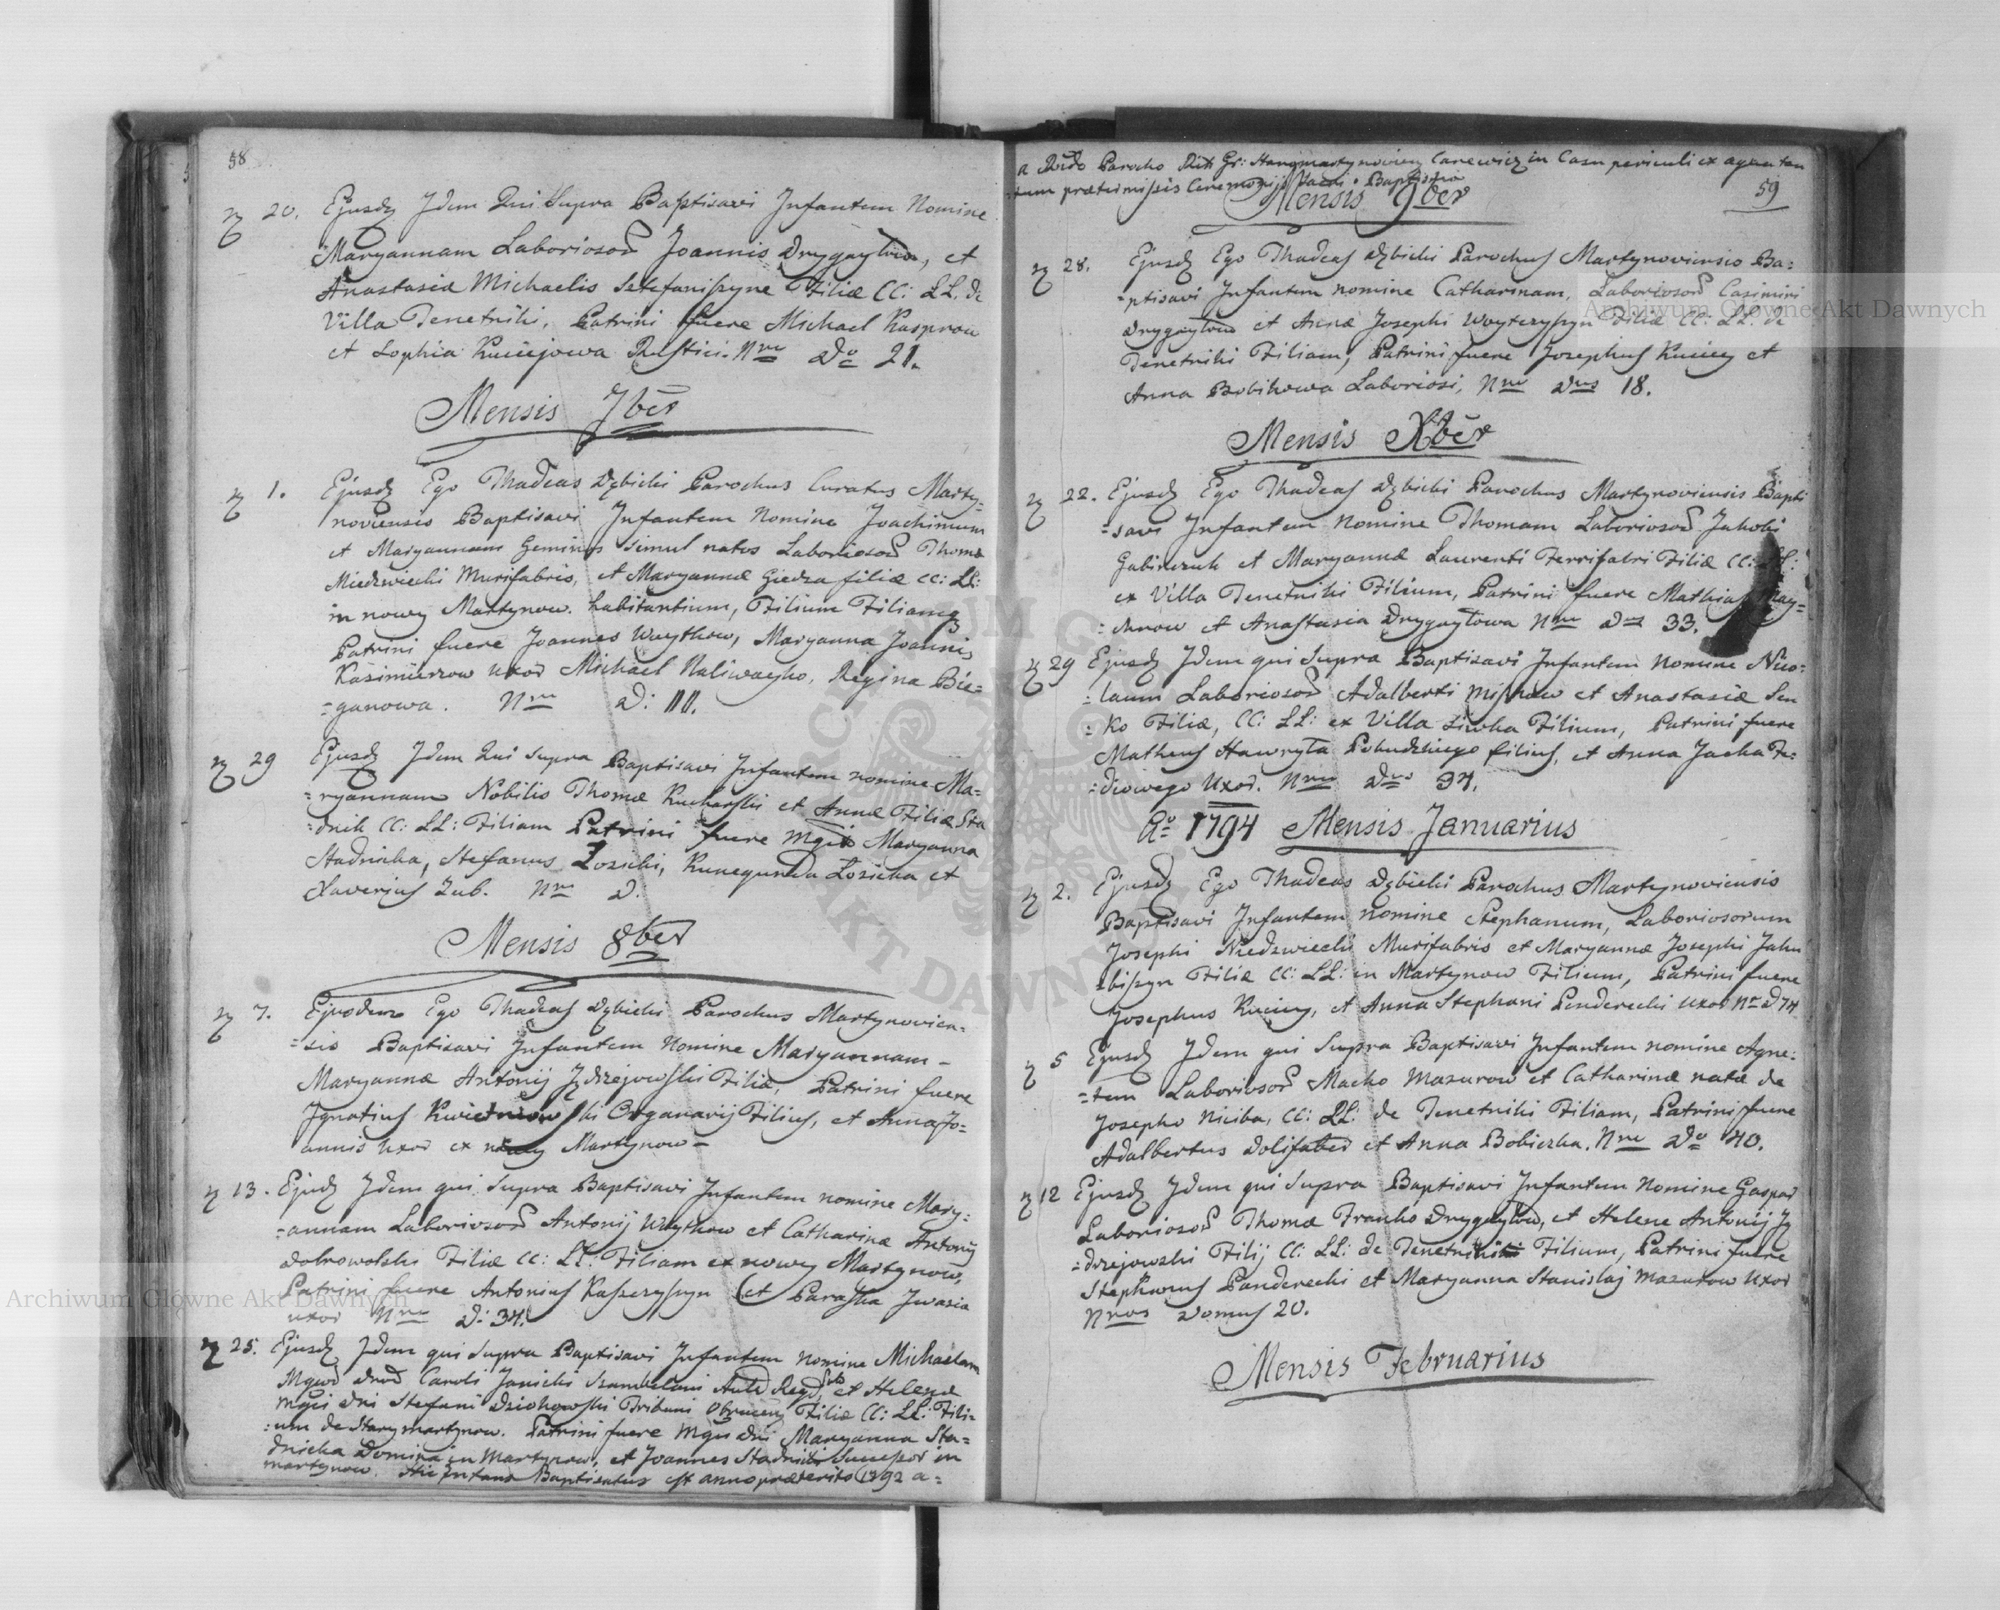 58
20. Ejusdem Idem Qui Supra Baptisavi Infantem Nomine
Maryannam Laboriosor Joannis Drygaytow, et
Anastasiæ Michaelis Filiæ CC: LL. de
Villa Tenetniki, Patrini fuere Michael Kasprow
et Sophia Kuciejowa Rustici. Nro Do 21.
Mensis 7ber
1. Ejusd Ego Thadeus Dębicki Parochus Curatus Marty-
noviensis Baptisavi Infantem Nomine Joachimum
et Maryannam Geminos simul natos Laboriosor Thomæ
Miedzwiecki Murifabris, et Maryannæ Giedza filiæ CC: LL:
in nowy Martynow habitantium, Filium Filiamq
Patrini fuere Joannes Woytkow, Maryanna Joannis
Kazimierzow uxor Michael Naliwayko, Regina Bie-
=ganowa. Nro D: 111.
29 Ejusd Idem Qui Supra Baptisavi Infantem nomine Ma-
=ryannam Nobilis Thomæ Kucharski et Annæ Filiæ Sta
=dnik CC: LL: Filiam Patrini fuere Mgis Maryanna
Stadnicka, Stefanus Łosicki, Kunegunda Łosicka et
Xaverius Zub. Nro D.
Mensis 8ber
7. Ejusdem Ego Thadeus Dębicki Parochus Martynovien-
=sis Baptisavi Infantem Nomine Maryannam -
Maryannæ Antonij Jędrzejowski Filiæ, Patrini fuere
Ignatius Kwietniowski Organarij Filius, et Anna Jo=
annis uxor ex nowy Martynow -
13. Ejusd Idem qui Supra Baptisavi Infantem nomine Mary=
=annam Laboriosor Antonij Woytkow et Catharinæ Antonij
Dobrowolski Filiæ CC: LL: Filiam ex nowy Martynow,
Patrini fuere Antonius et Paraska Iwasia
uxor Nro D: 34.
25. Ejusd Idem qui Supra Baptisavi Infantem nomine Michaelem
Mgcor Dnor Caroli Janicki Szambelani Aulæ et Helenæ
Mgci Dni Stefani Dziokowski Tribuni Filiæ CC: LL: Fili=
=um de Stary martynow. Patrini fuere Mgci Dni Maryanna Sta=
dnicka Domina in Martynow, et Joannes Stadnicki Successor in
martynow. Hic Infans Baptisatus est anno præterito 1792 a=
a Rndo Parocho Rit Gr: in Casu periculi ex aqua tan
tum prætermissis Ceremonijs
59
Mensis 9ber
28. Ejusd Ego Thadeus Dębicki Parochus Martynoviensis Ba=
=ptisavi Infantem nomine Catharinam, Laboriosor Casimiri
Drygaytow et Annæ Josephi Filiæ CC: LL: de
Tenetniki Filiam, Patrini fuere Josephus Kuciey et
Anna Bobikowa Laboriosi, Nro Dus 18.
Mensis Xber
22. Ejusd Ego Thadeus Dębicki Parochus Martynoviensis Bapti
=savi Infantem Nomine Thomam Laboriosor Jakobi
Gabinczuk et Maryannæ Laurenti Ferrifabri Filiæ CC: LL:
ex Villa Tenetniki Filium, Patrini fuere Mathias
=chrow et Anastasia Drygaytowa Nro D 33.
29 Ejusd Idem qui Supra Baptisavi Infantem nomine Nico=
=laum Laboriosor Adalberti et Anastasiæ Sen
=ko Filiæ, CC: LL: ex Villa Siwka Filium, Patrini fuere
Matheus Hawryła filius, et Anna Jacka Fe=
=diowego Uxor. Nro Dus 34.
Ao 1794 Mensis Januarius
2. Ejusd Ego Thadeus Dębicki Parochus Martynoviensis
Baptisavi Infantem Nomine Stephanum, Laboriosorum
Josephi Niedzwiecki Murifabris et Maryannæ Josephi Jaku
Filiæ CC: LL: in Martynow Filium, Patrini fuere
Josephus Kuciey, et Anna Stephani Penderecki uxor Nro D 74
5 Ejusd Idem qui Supra Baptisavi Infantem nomine Agne=
=tem Laboriosor Macko Mazurow et Catharinæ natæ de
Josepho Niciba, CC: LL: de Tenetniki Filiam, Patrini fuere
Adalbertus Dolifaber et Anna Bobiczka. Nro Do 40.
12 Ejusd Idem qui Supra Baptisavi Infantem Nomine Gaspar
Laboriosor Thomæ Franko Drygaytow, et Helenæ Antonij Ję
=drzejowski Filij CC: LL: de Tenetniki Filium, Patrini fuere
Stephanus Panderecki et Maryanna Stanislaj Mazurow Uxor
Nrus Domus 20.
Mensis Februarius
Archiwum Główne Akt Dawnych
Archiwum Główne Akt Dawnych